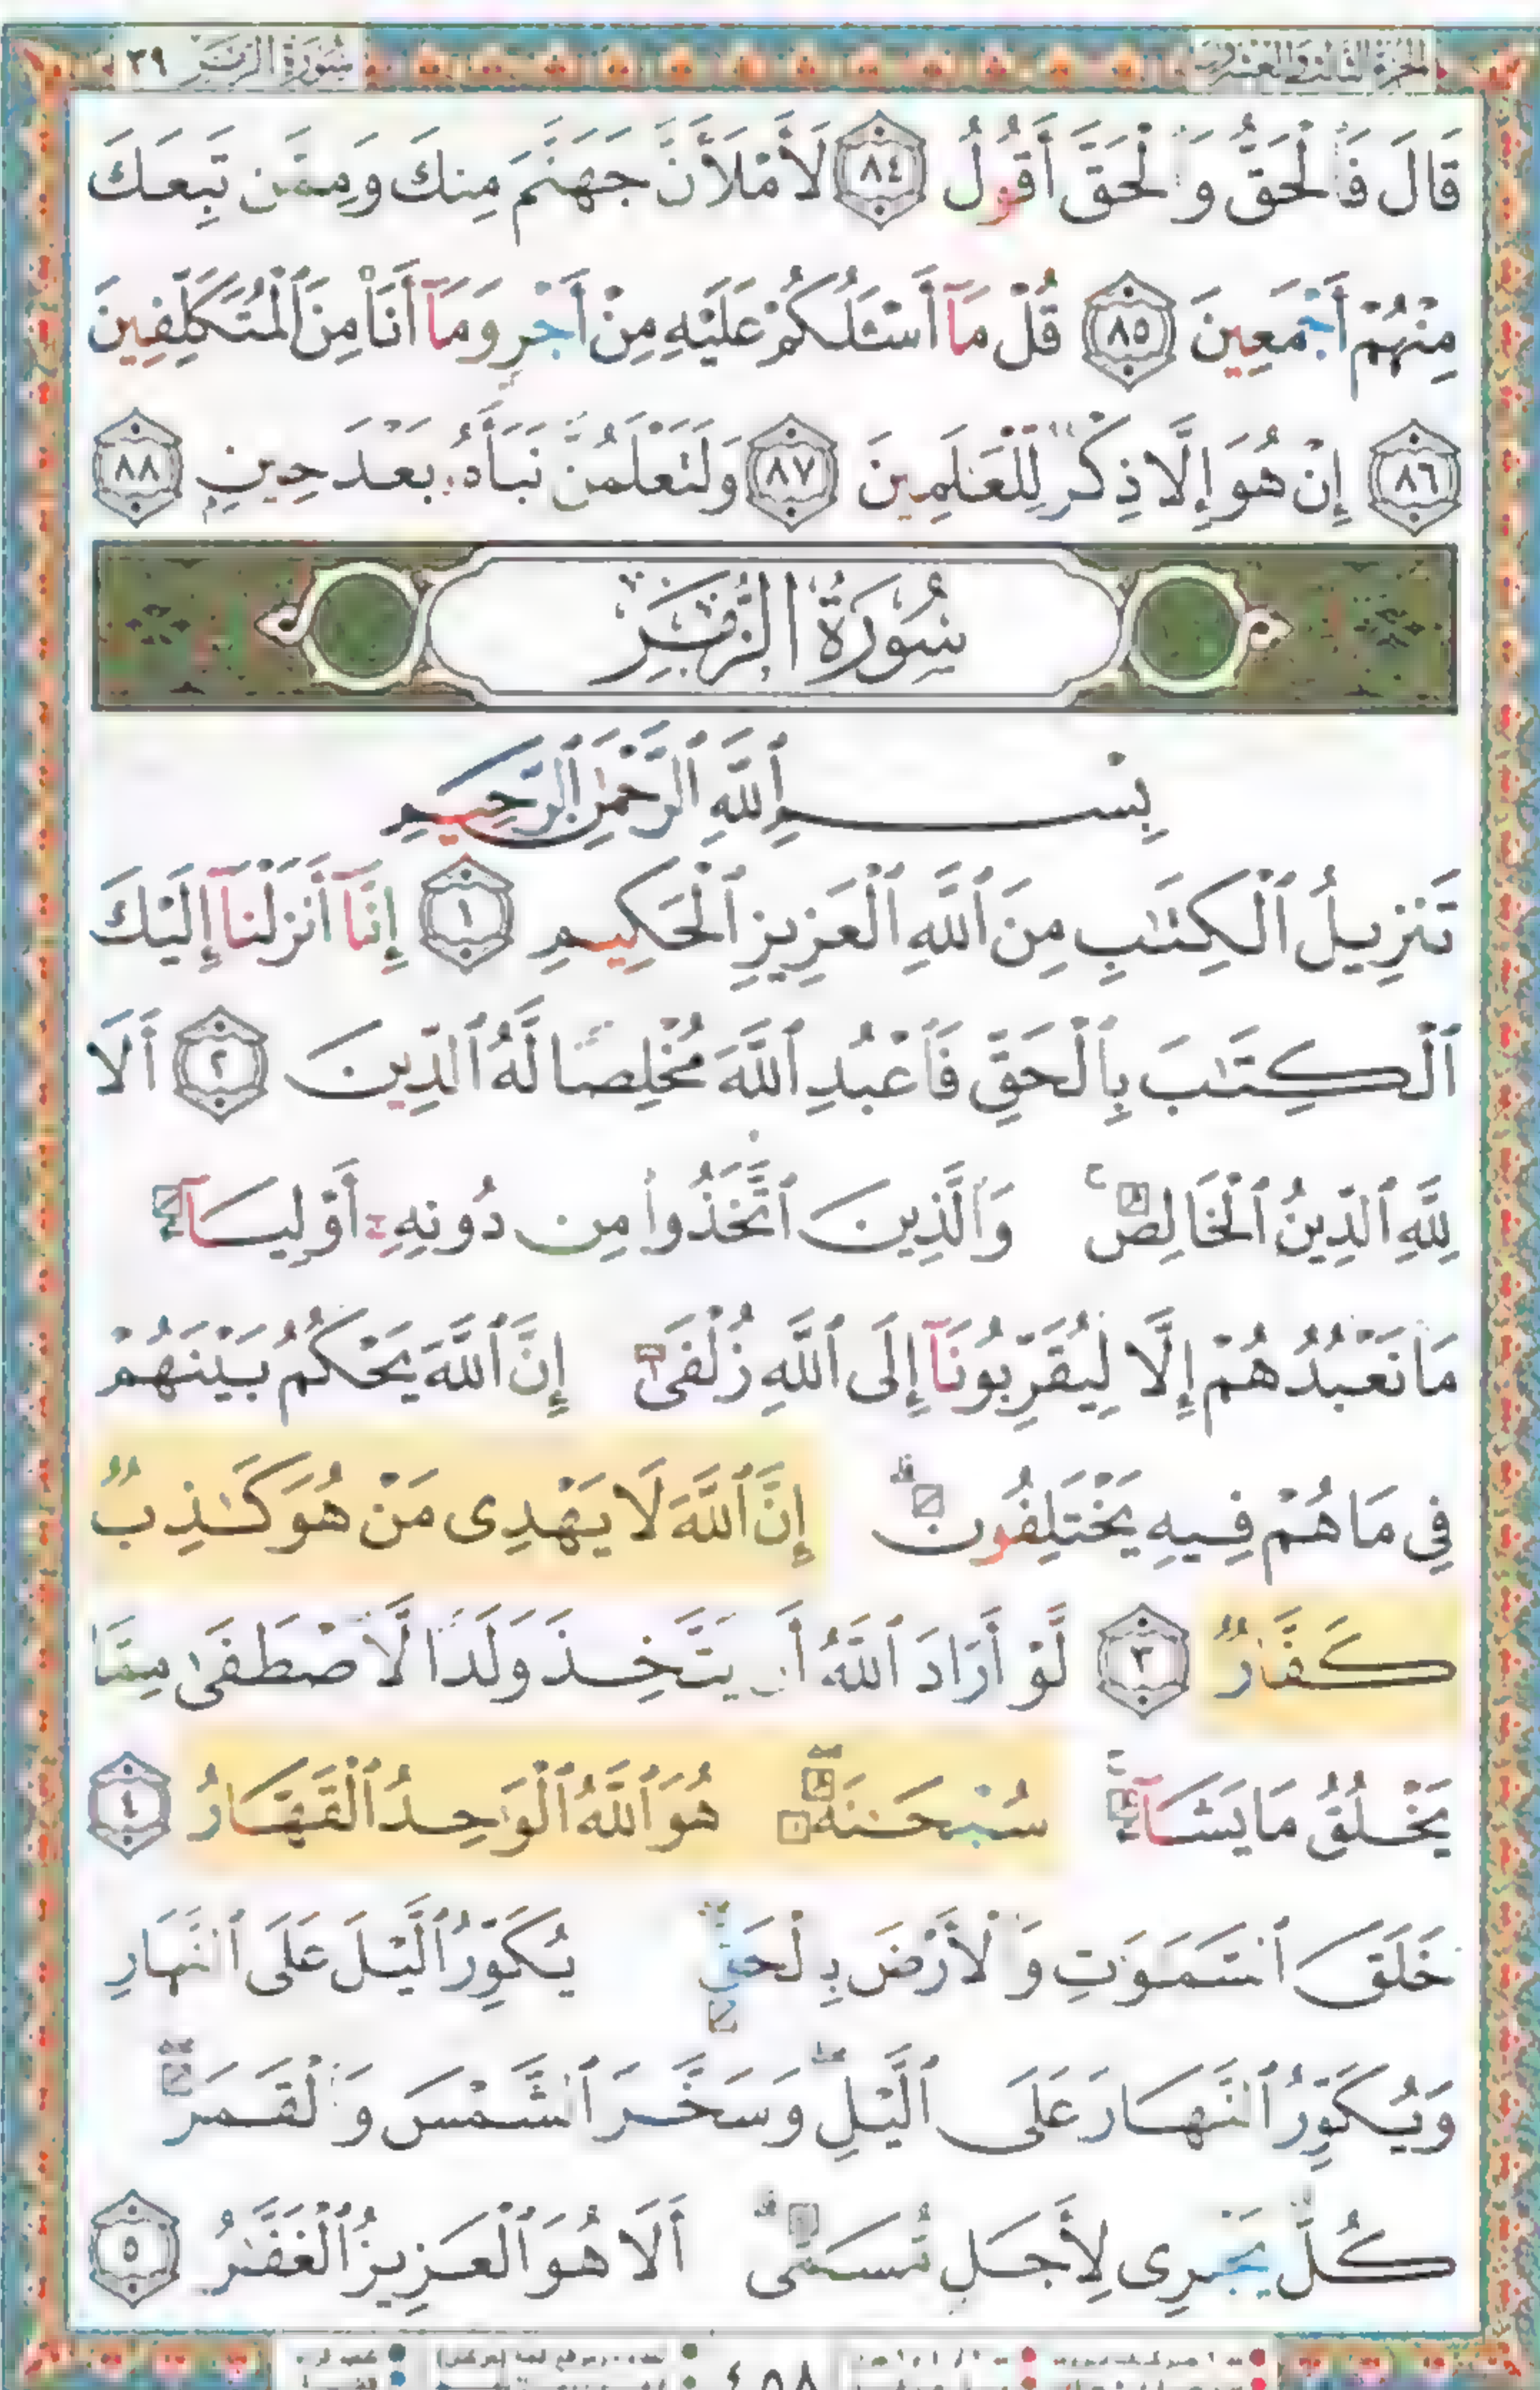 الجزء الثالث والعشرون
سُورَةُ الزُّمَرِ ٣٩
قَالَ فَٱلْحَقُّ وَٱلْحَقَّ أَقُولُ ٨٤ لَأَمْلَأَنَّ جَهَنَّمَ مِنكَ وَمِمَّن تَبِعَكَ
مِنْهُمْ أَجْمَعِينَ ٨٥ قُلْ مَآ أَسْـَٔلُكُمْ عَلَيْهِ مِنْ أَجْرٍ وَمَآ أَنَا۠ مِنَ ٱلْمُتَكَلِّفِينَ
٨٦ إِنْ هُوَ إِلَّا ذِكْرٌ لِّلْعَـٰلَمِينَ ٨٧ وَلَتَعْلَمُنَّ نَبَأَهُۥ بَعْدَ حِينٍۭ ٨٨
سُورَةُ الزُّمَرِ
بِسْمِ ٱللَّهِ ٱلرَّحْمَـٰنِ ٱلرَّحِيمِ
تَنزِيلُ ٱلْكِتَـٰبِ مِنَ ٱللَّهِ ٱلْعَزِيزِ ٱلْحَكِيمِ ١ إِنَّآ أَنزَلْنَآ إِلَيْكَ
ٱلْكِتَـٰبَ بِٱلْحَقِّ فَٱعْبُدِ ٱللَّهَ مُخْلِصًا لَّهُ ٱلدِّينَ ٢ أَلَا
لِلَّهِ ٱلدِّينُ ٱلْخَالِصُ ۚ وَٱلَّذِينَ ٱتَّخَذُوا۟ مِن دُونِهِۦٓ أَوْلِيَآءَ
مَا نَعْبُدُهُمْ إِلَّا لِيُقَرِّبُونَآ إِلَى ٱللَّهِ زُلْفَىٰٓ إِنَّ ٱللَّهَ يَحْكُمُ بَيْنَهُمْ
فِى مَا هُمْ فِيهِ يَخْتَلِفُونَ ۗ إِنَّ ٱللَّهَ لَا يَهْدِى مَنْ هُوَ كَـٰذِبٌ
كَفَّارٌ ٣ لَّوْ أَرَادَ ٱللَّهُ أَن يَتَّخِذَ وَلَدًا لَّٱصْطَفَىٰ مِمَّا
يَخْلُقُ مَا يَشَآءُ ۚ سُبْحَـٰنَهُۥ ۖ هُوَ ٱللَّهُ ٱلْوَٰحِدُ ٱلْقَهَّارُ ٤
خَلَقَ ٱلسَّمَـٰوَٰتِ وَٱلْأَرْضَ بِٱلْحَقِّ ۖ يُكَوِّرُ ٱلَّيْلَ عَلَى ٱلنَّهَارِ
وَيُكَوِّرُ ٱلنَّهَارَ عَلَى ٱلَّيْلِ ۖ وَسَخَّرَ ٱلشَّمْسَ وَٱلْقَمَرَ ۖ
كُلٌّ يَجْرِى لِأَجَلٍ مُّسَمًّى ۗ أَلَا هُوَ ٱلْعَزِيزُ ٱلْغَفَّـٰرُ ٥
٤٥٨